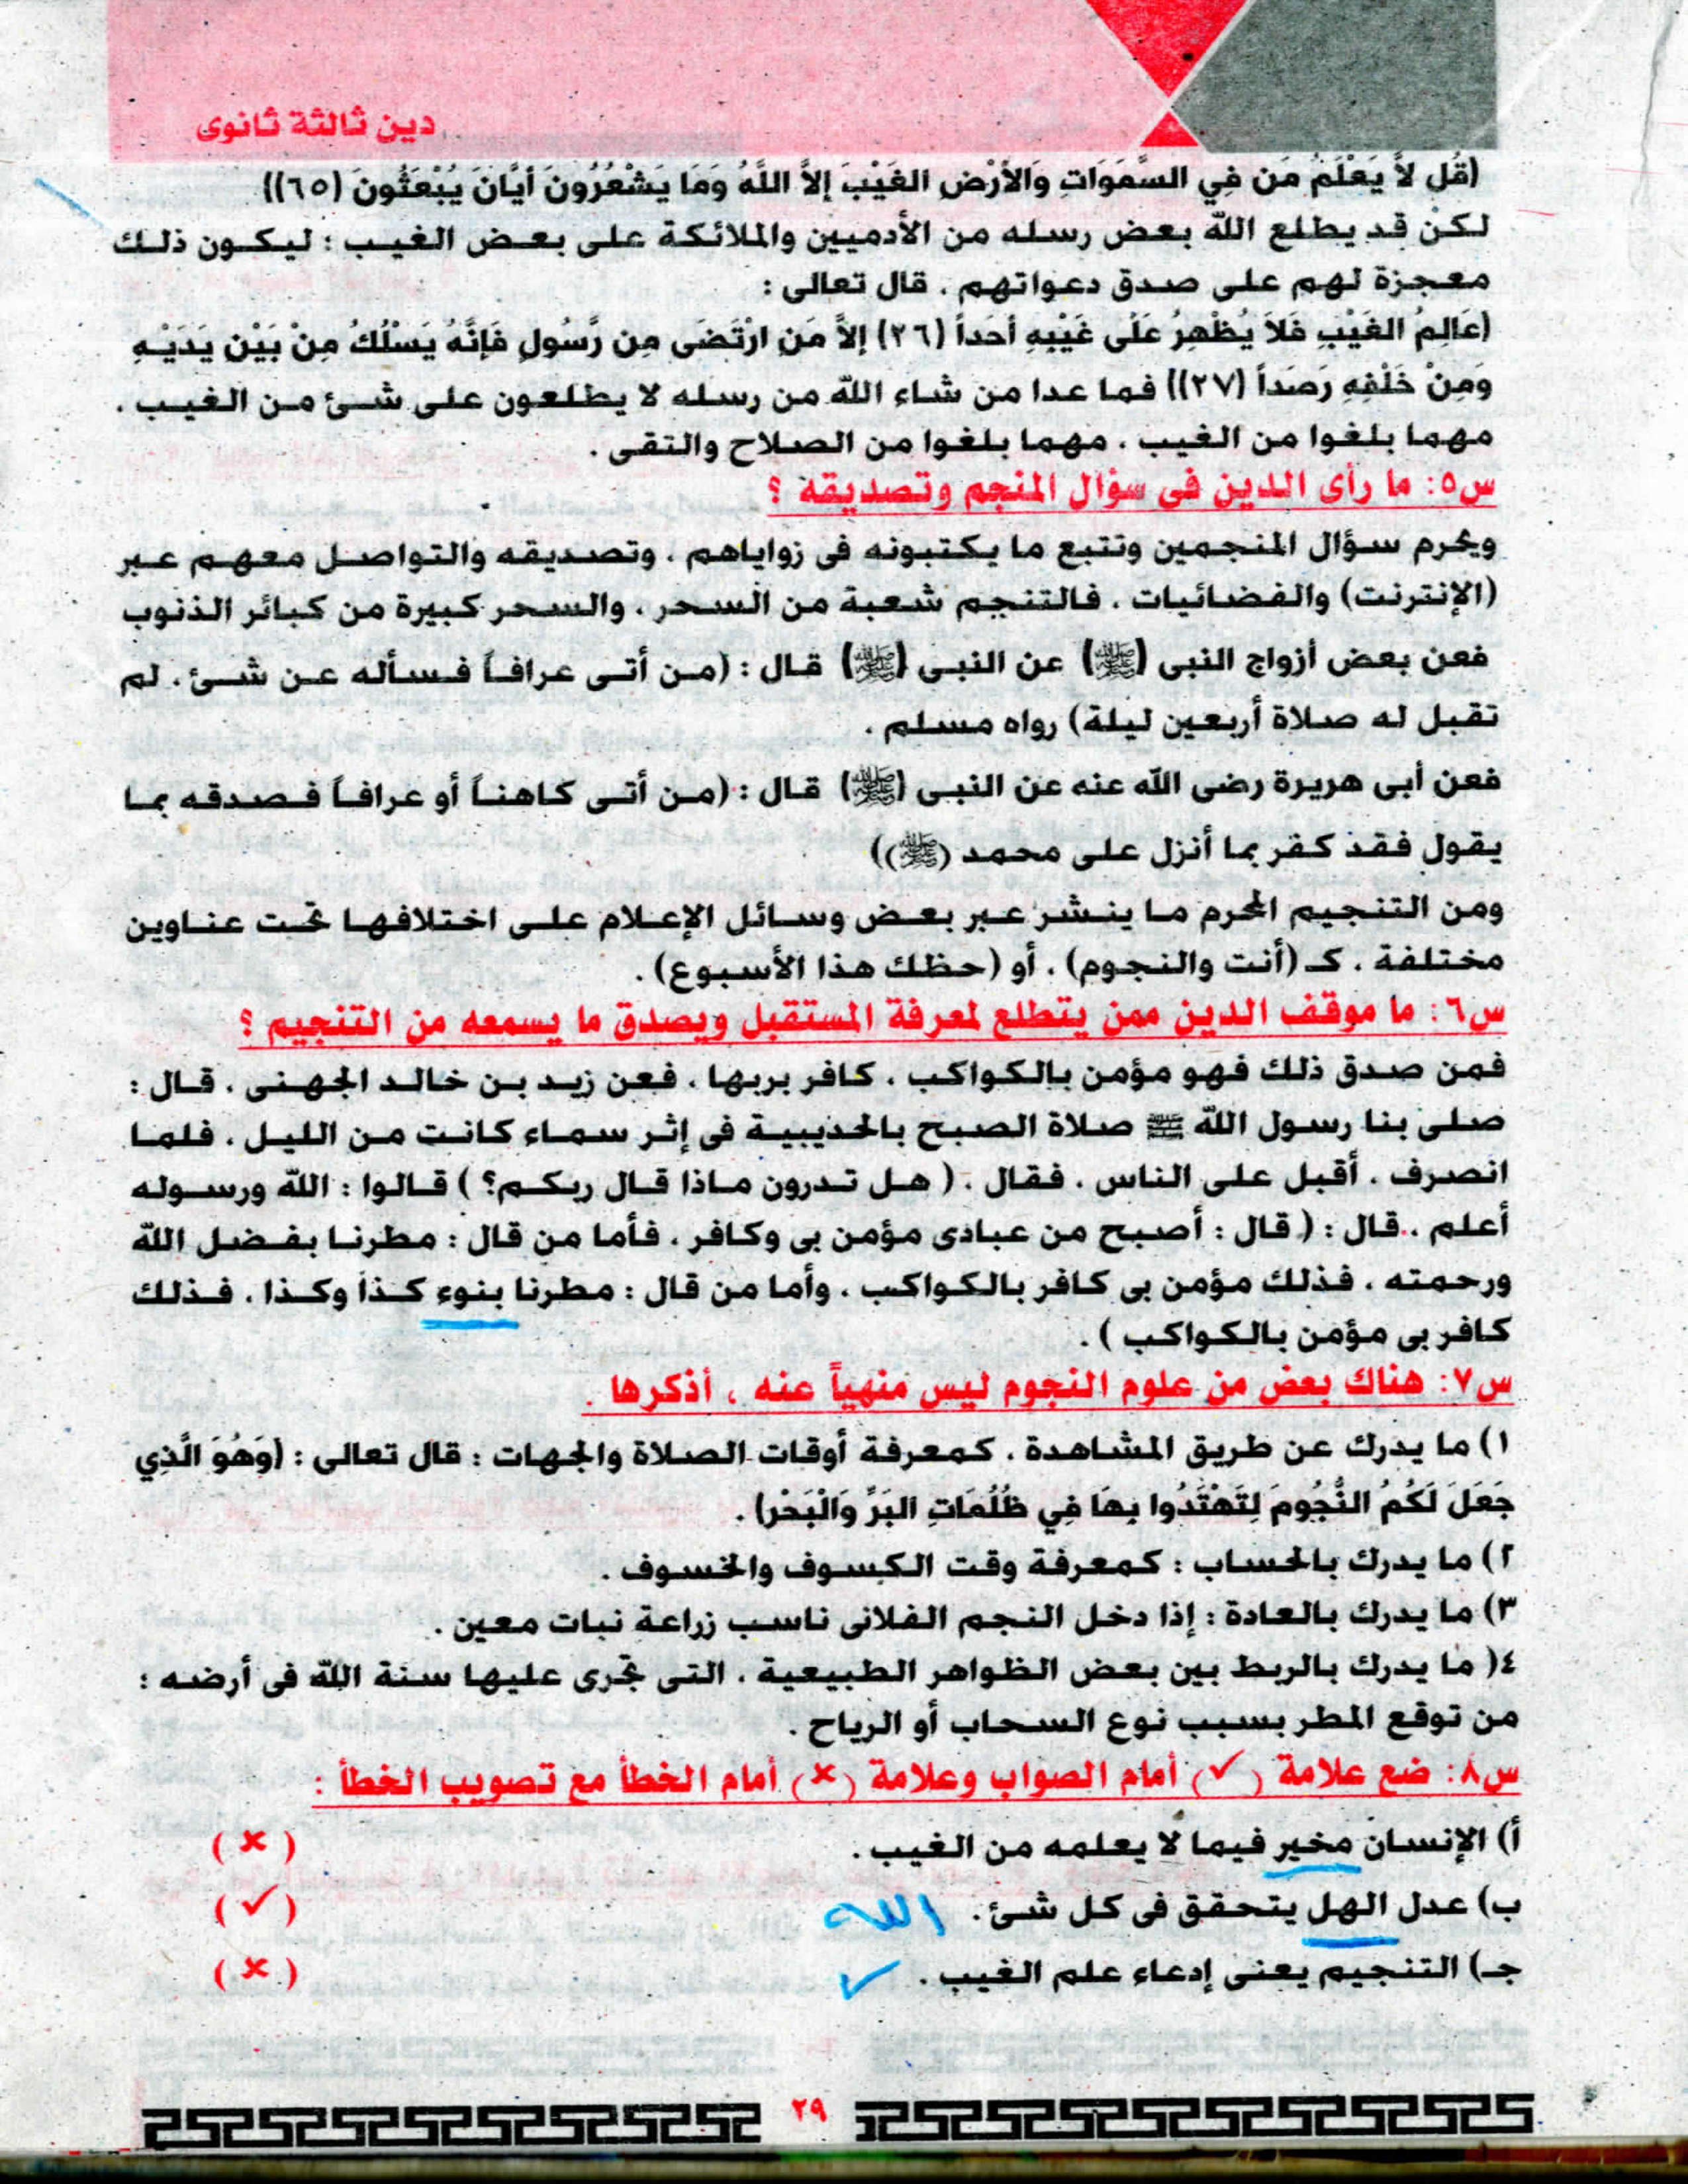 دين ثالثة ثانوى
(قُل لاَّ يَعْلَمُ مَن فِي السَّمَوَاتِ وَالأَرْضِ الغَيْبَ إلاَّ اللَّهُ وَمَا يَشْعُرُونَ أَيَّانَ يُبْعَثُونَ (٦٥))
لكن قد يطلع الله بعض رسله من الأدميين والملائكة على بعض الغيب : ليكون ذلك
معجزة لهم على صدق دعواتهم . قال تعالى :
(عَالِمُ الغَيْبِ فَلاَ يُظْهِرُ عَلَى غَيْبِهِ أَحَداً (٢٦) إلاَّ مَنِ ارْتَضَى مِن رَّسُولٍ فَإِنَّهُ يَسْلُكُ مِنْ بَيْنِ يَدَيْهِ
وَمِنْ خَلْفِهِ رَصَداً (٢٧)) فما عدا من شاء الله من رسله لا يطلعون على شئ من الغيب .
مهما بلغوا من الغيب . مهما بلغوا من الصلاح والتقى .
س٥: ما رأى الدين فى سؤال المنجم وتصديقه ؟
ويحرم سؤال المنجمين وتتبع ما يكتبونه فى زواياهم . وتصديقه والتواصل معهم عبر
(الإنترنت) والفضائيات . فالتنجم شعبة من السحر . والسحر كبيرة من كبائر الذنوب
فعن بعض أزواج النبى (ﷺ) عن النبى (ﷺ) قال : (من أتى عرافاً فسأله عن شئ . لم
تقبل له صلاة أربعين ليلة) رواه مسلم .
فعن أبى هريرة رضى الله عنه عن النبى (ﷺ) قال : (من أتى كاهناً أو عرافاً فصدقه بما
يقول فقد كفر بما أنزل على محمد (ﷺ))
ومن التنجيم المحرم ما ينشر عبر بعض وسائل الإعلام على اختلافها تحت عناوين
مختلفة . كـ (أنت والنجوم) . أو (حظك هذا الأسبوع) .
س٦: ما موقف الدين ممن يتطلع لمعرفة المستقبل ويصدق ما يسمعه من التنجيم ؟
فمن صدق ذلك فهو مؤمن بالكواكب . كافر بربها . فعن زيد بن خالد الجهنى . قال :
صلى بنا رسول الله ﷺ صلاة الصبح بالحديبية فى إثر سماء كانت من الليل . فلما
انصرف . أقبل على الناس . فقال . ( هل تدرون ماذا قال ربكم؟ ) قالوا : الله ورسوله
أعلم . قال : ( قال : أصبح من عبادى مؤمن بى وكافر . فأما من قال : مطرنا بفضل الله
ورحمته . فذلك مؤمن بى كافر بالكواكب . وأما من قال : مطرنا بنوء كذا وكذا . فذلك
كافر بى مؤمن بالكواكب ) .
س٧: هناك بعض من علوم النجوم ليس منهياً عنه ، أذكرها .
١) ما يدرك عن طريق المشاهدة . كمعرفة أوقات الصلاة والجهات : قال تعالى : (وَهُوَ الَّذِي
جَعَلَ لَكُمُ النُّجُومَ لِتَهْتَدُوا بِهَا فِي ظُلُمَاتِ البَرِّ وَالْبَحْرِ) .
٢) ما يدرك بالحساب : كمعرفة وقت الكسوف والخسوف .
٣) ما يدرك بالعادة : إذا دخل النجم الفلانى ناسب زراعة نبات معين .
٤( ما يدرك بالربط بين بعض الظواهر الطبيعية . التى تجرى عليها سنة الله فى أرضه :
من توقع المطر بسبب نوع السحاب أو الرياح .
س٨: ضع علامة (✓) أمام الصواب وعلامة (×) أمام الخطأ مع تصويب الخطأ :
أ) الإنسان مخير فيما لا يعلمه من الغيب . (×)
ب) عدل الهل يتحقق فى كل شئ . الله (✓)
جـ) التنجيم يعنى إدعاء علم الغيب . ✓ (×)
٢٩